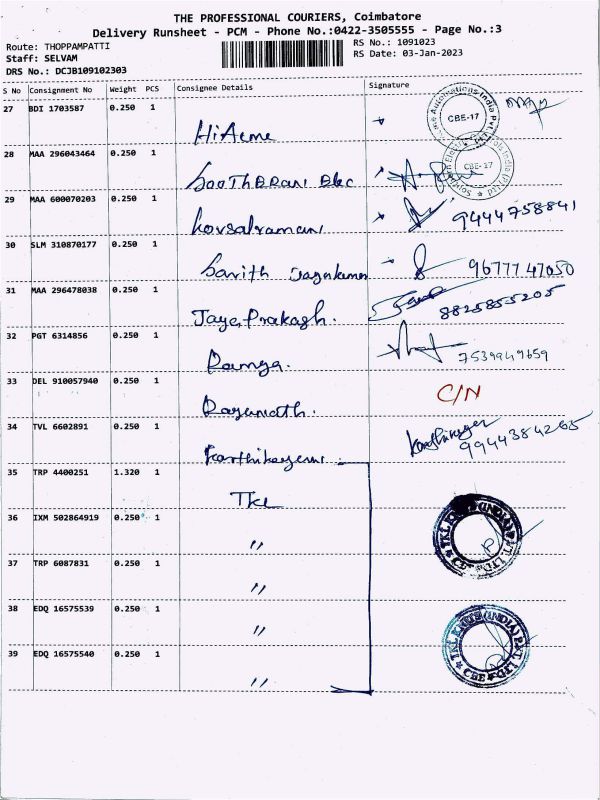 THE PROFESSIONAL COURIERS, Coimbatore
Delivery Runsheet - PCM - Phone No.:0422-3505555 - Page No.:3
Route: THOPPAMPATTI
RS No.: 1091023
Staff: SELVAM
RS Date: 03-Jan-2023
DRS No.: DCJB109102303
S No Consignment No Weight PCS Consignee Details Signature
27 BDI 1703587 0.250 1
HiAcme
CBE-17
28 MAA 296043464 0.250 1
SooTHBRAN Elec
CBE-17
29 MAA 600070203 0.250 1
Kovsalyamani
9444758841
30 SLM 310870177 0.250 1
Sarith Jayakumar
9677747050
31 MAA 296478038 0.250 1
Jaya Prakash.
8825855205
32 PGT 6314856 0.250 1
Ramya.
7539949659
33 DEL 910057940 0.250 1
C/N
34 TVL 6602891 0.250 1
Karthikeyeni
9944384265
35 TRP 4400251 1.320 1
TKL
36 IXM 502864919 0.250 1
〃
TKL KNITS (INDIA) PVT. LTD
37 TRP 6087831 0.250 1
〃
38 EDQ 16575539 0.250 1
〃
TKL KNITS (INDIA) PVT. LTD
CBE
39 EDQ 16575540 0.250 1
〃